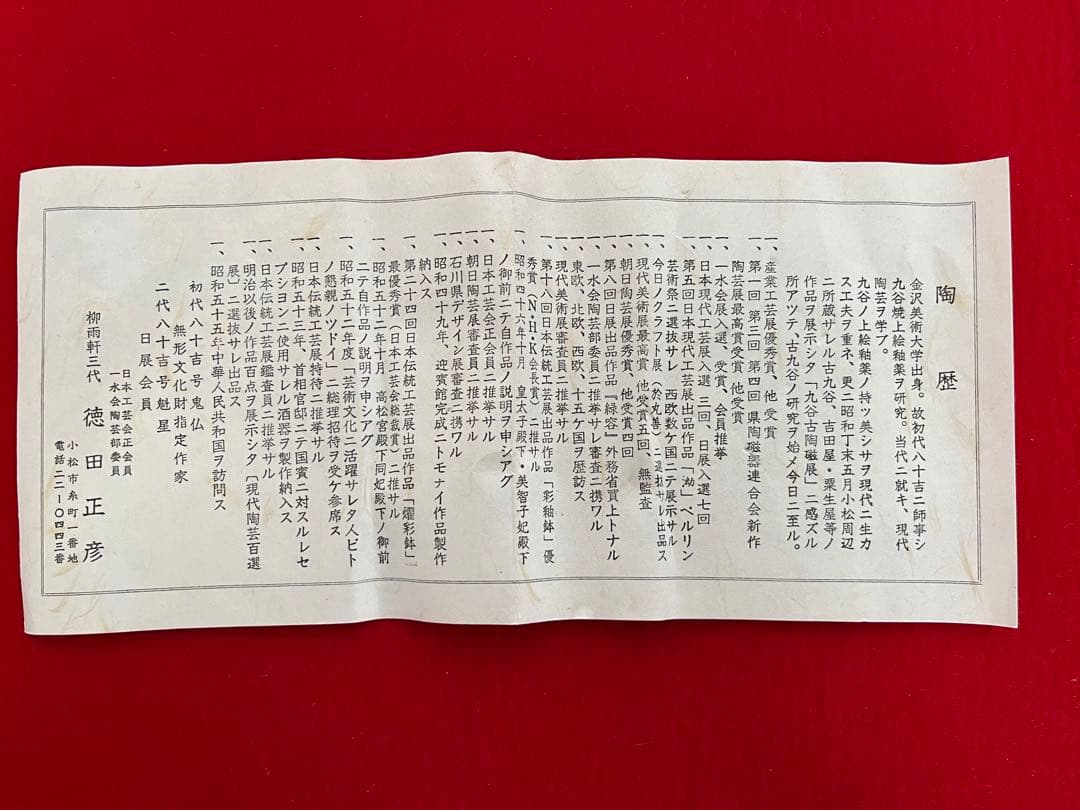 陶歴
金沢美術大学出身。故初代八十吉ニ師事シ
九谷焼上絵釉薬ヲ研究。当代ニ就キ、現代
陶芸ヲ学ブ。
九谷ノ上絵釉薬ノ持ツ美シサヲ現代ニ生カ
ス工夫ヲ重ネ、更ニ昭和丁末五月小松周辺
ニ所蔵サレル古九谷、吉田屋・粟生屋等ノ
作品ヲ展示シタ「九谷古陶磁展」ニ感ズル
所アツテ古九谷ノ研究ヲ始メ今日ニ至ル。
一、産業工芸展優秀賞、他 受賞
一、第一回 第三回 第四回 県陶磁器連合会新作
陶芸展最高賞受賞 他受賞
一、一水会展入選、受賞、会員推挙
一、日本現代工芸展入選 三回、日展入選七回
一、第五回日本現代工芸展出品作品「泑」ベルリン
芸術祭ニ選抜サレ 西欧数ケ国ニテ展示サル
一、今日ノクラフト展（於丸善）ニ選抜サレ出品ス
一、現代美術展最高賞 他受賞五回、無監査
一、朝日陶芸展優秀賞、他受賞四回
一、第八回日展出品作品『緑容』外務省買上トナル
一、一水会陶芸部委員ニ推挙サレ審査ニ携ワル
一、東欧、北欧、西欧、十五ケ国ヲ歴訪ス
一、現代美術展審査員ニ推挙サル
一、第十八回日本伝統工芸展出品作品「彩釉鉢」優
秀賞（N・H・K会長賞）ニ推サル
一、昭和四十六年十月 皇太子殿下・美智子妃殿下
ノ御前ニテ自作品ノ説明ヲ申シアグ
一、日本工芸会正会員ニ推挙サル
一、朝日陶芸展審査員ニ推挙サル
一、石川県デザイン展審査ニ携ワル
一、昭和四十九年、迎賓館完成ニトモナイ作品製作
納入ス
一、第二十四回日本伝統工芸展出品作品「燿彩鉢」
最優秀賞（日本工芸会総裁賞）ニ推サル
一、昭和五十二年十月 高松宮殿下同妃殿下ノ御前
ニテ自作品ノ説明ヲ申シアグ
一、昭和五十二年度「芸術文化ニ活躍サレタ人ビト
ノ懇親ノツドイ」ニ総理招待ヲ受ケ参席ス
一、日本伝統工芸展特待ニ推挙サル
一、昭和五十三年、首相官邸ニテ国賓ニ対スルレセ
プシヨンニ使用サレル酒器ヲ製作納入ス
一、日本伝統工芸展鑑査員ニ推挙サル
一、明治以後ノ作品百点ヲ展示シタ〔現代陶芸百選
展〕ニ選抜サレ出品ス
一、昭和五十五年中華人民共和国ヲ訪問ス
初代八十吉号鬼仏
無形文化財指定作家
二代八十吉号魁星
日展会員
日本工芸会正会員
一水会陶芸部委員
柳雨軒三代 徳田正彦
小松市糸町一番地
電話二二-〇四四三番